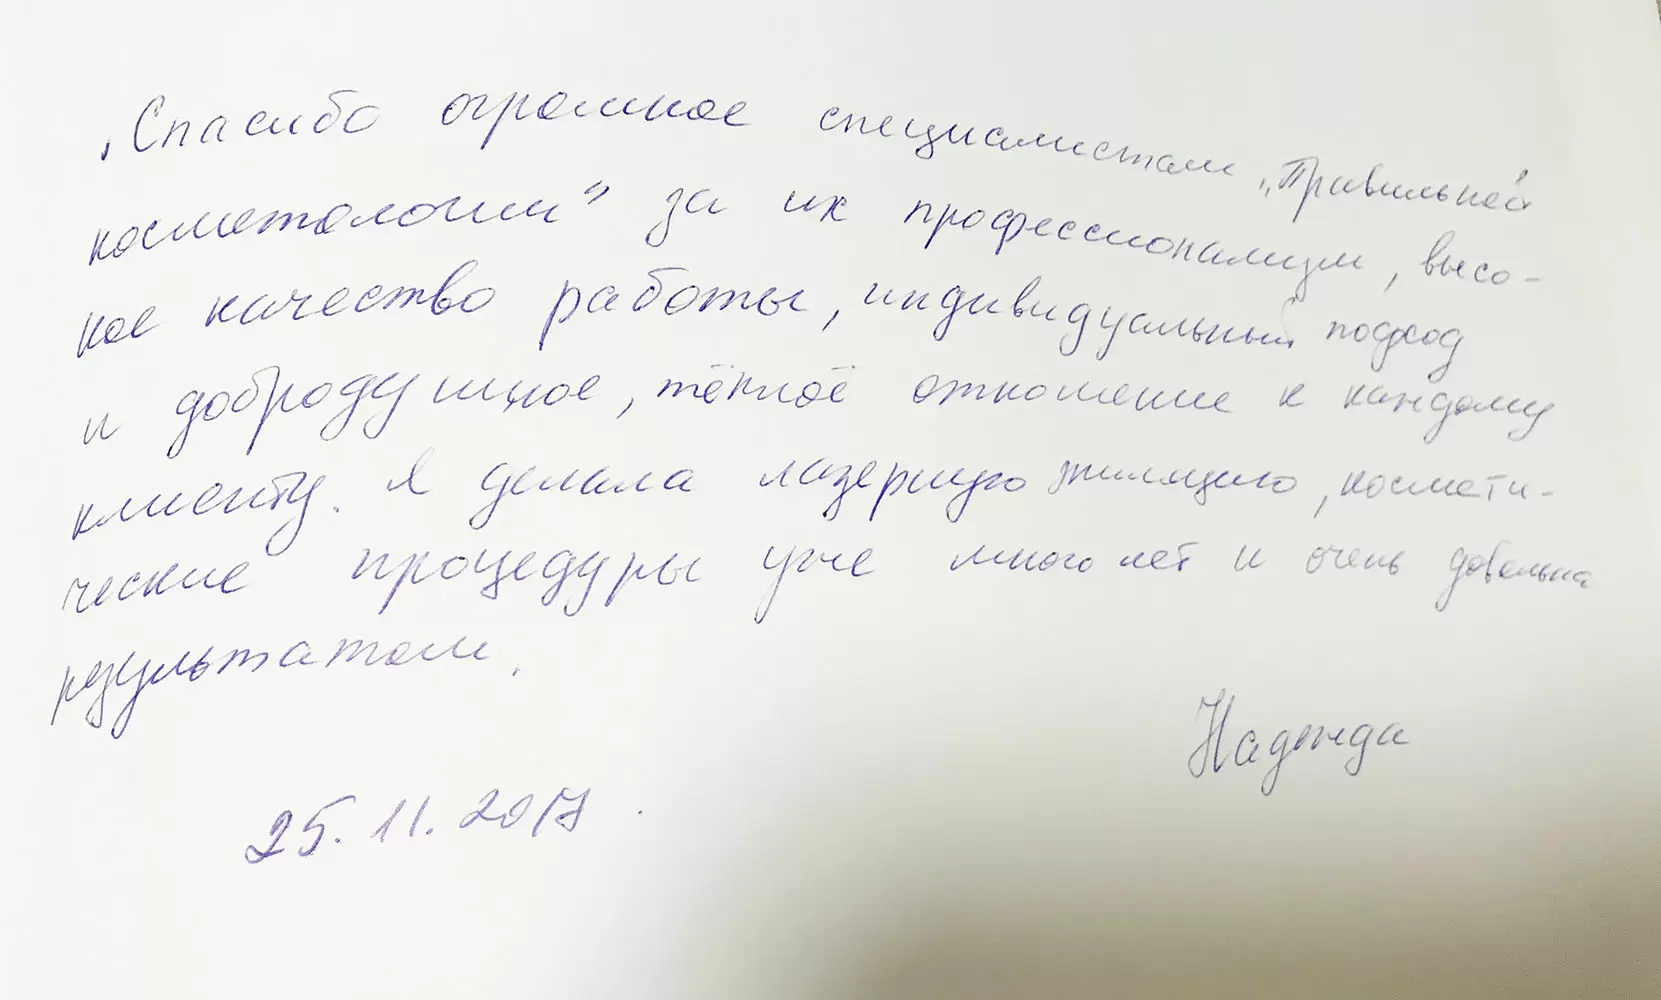 Спасибо огромное специалистам „Правильной
косметологии" за их профессионализм, высо-
кое качество работы, индивидуальный подход
и добродушное, тёплоё отношение к каждому
клиенту. Я делала лазерную эпиляцию, космети-
ческие процедуры уже много лет и очень довольна
результатом.
Надежда
25.11.2017.